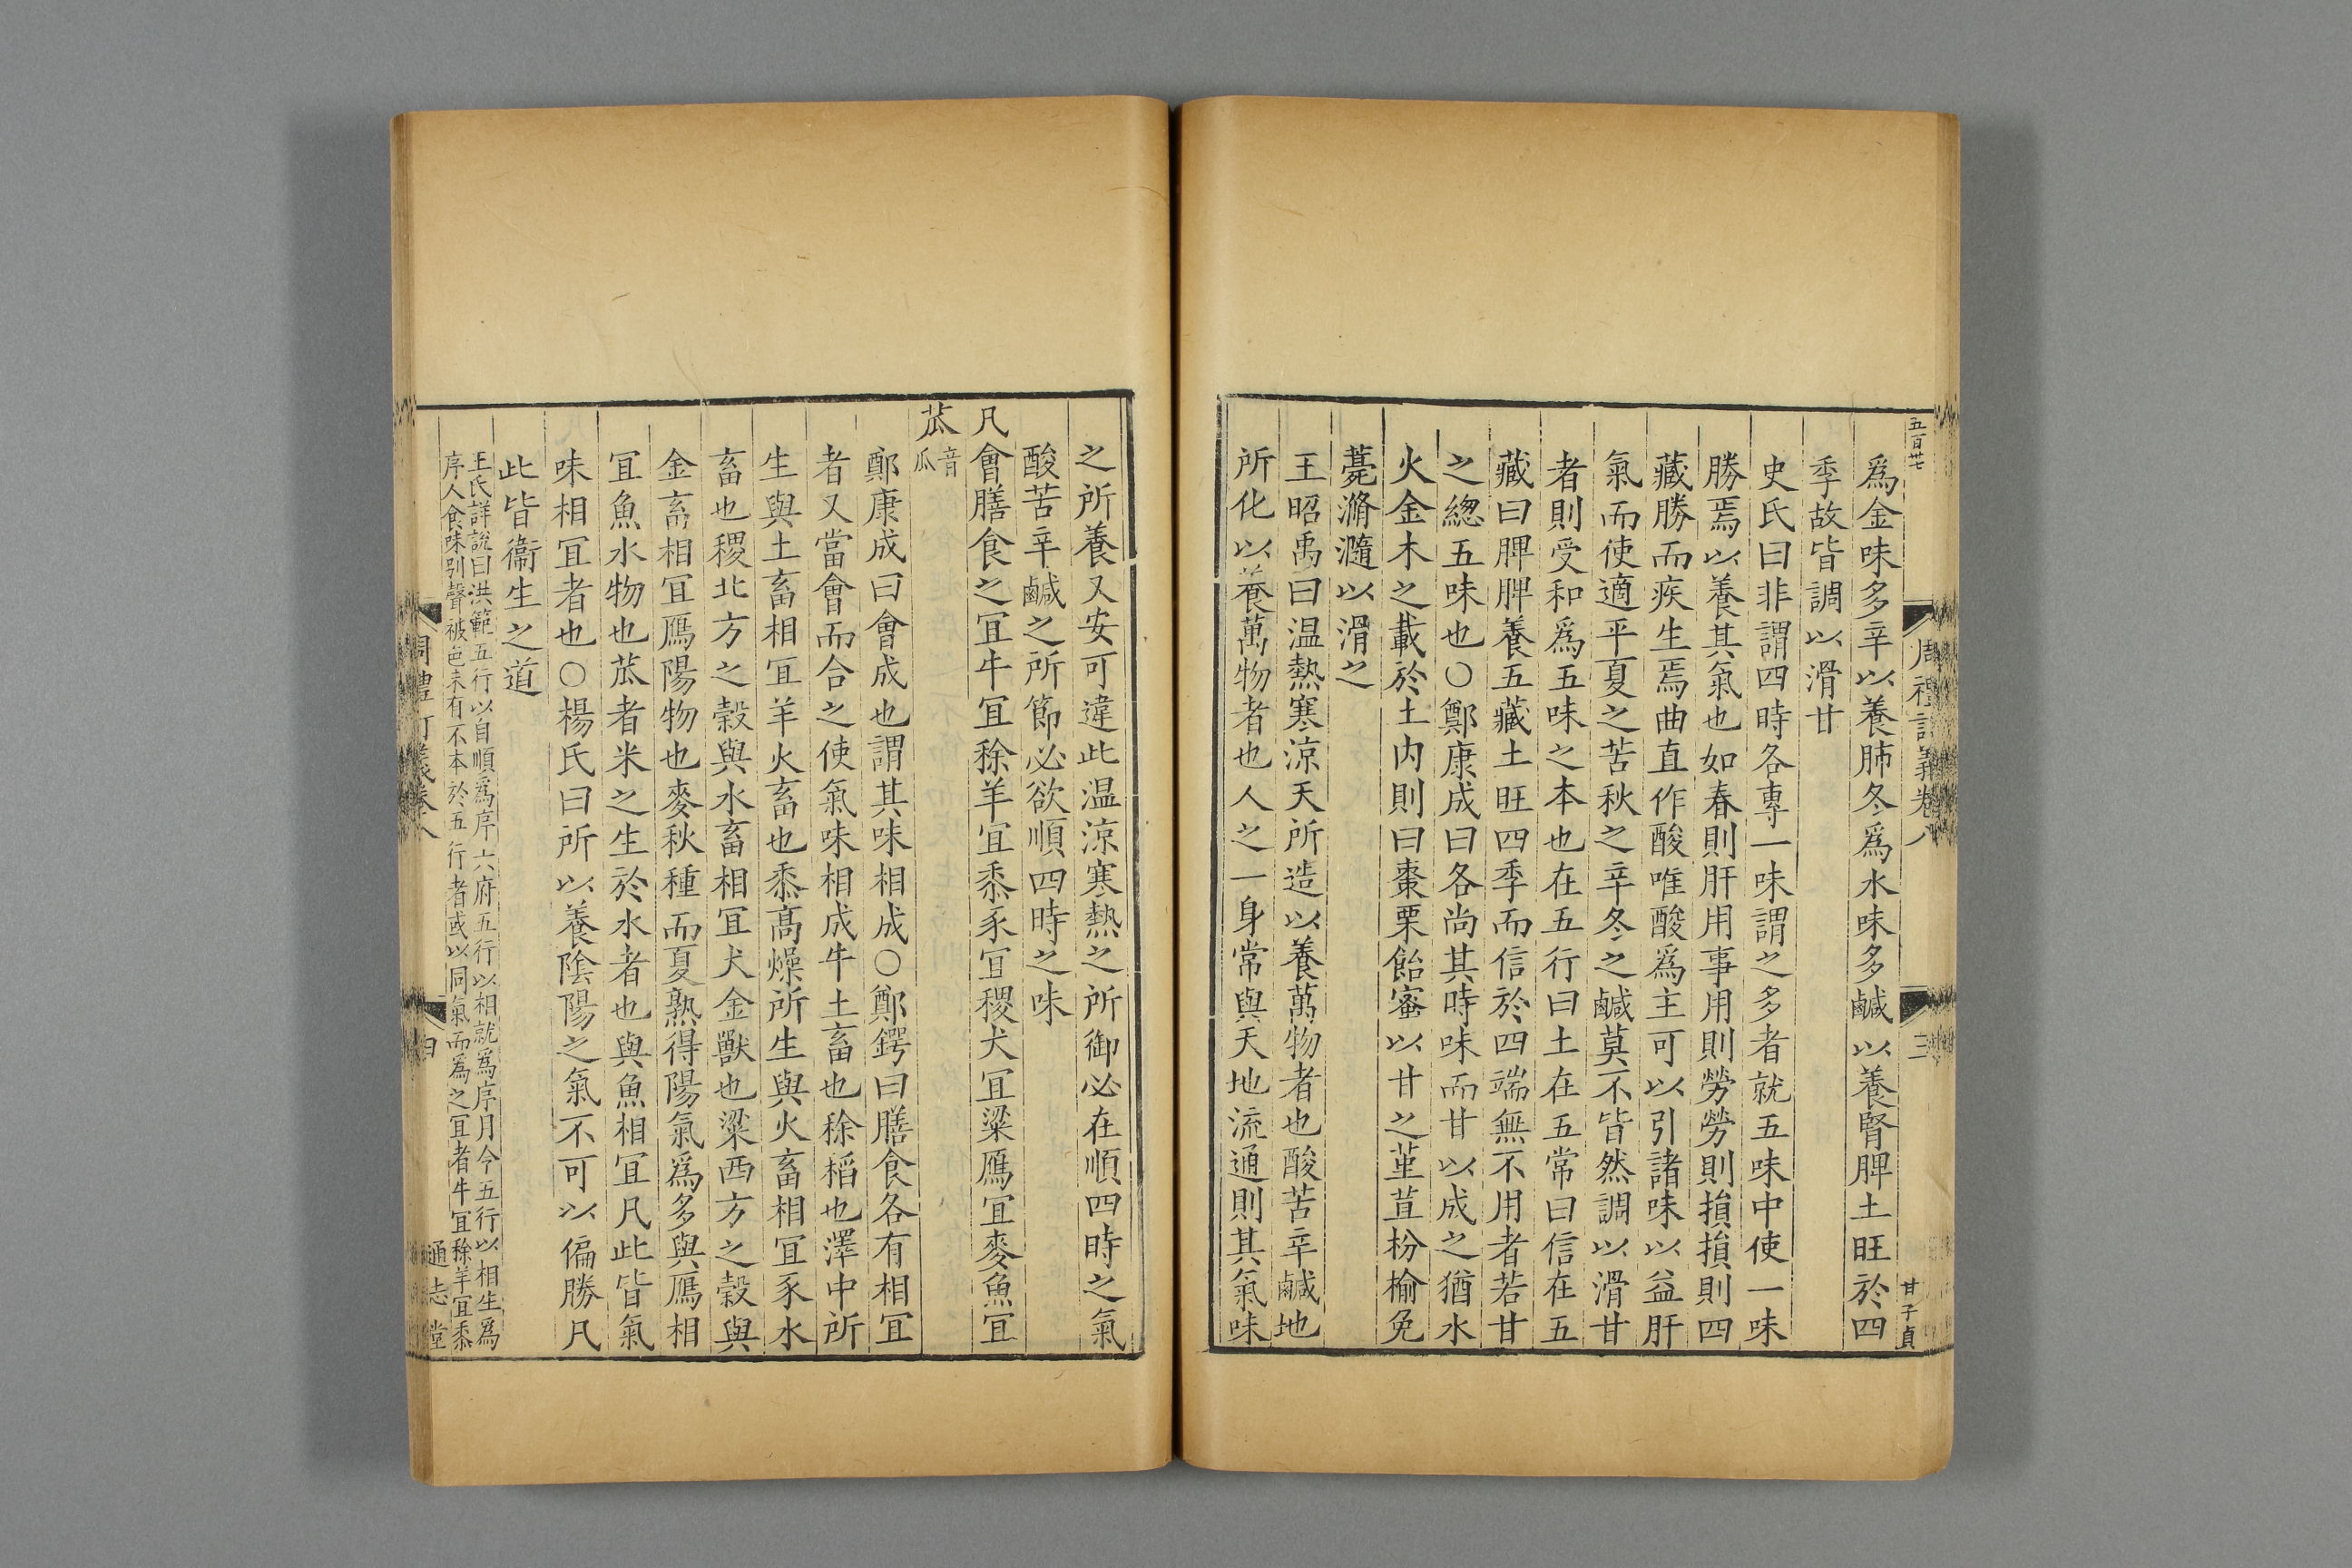 五百廿七
周禮訂義卷八
三
甘子貞
爲金味多辛以養肺冬爲水味多鹹以養腎脾土旺於四
季故皆調以滑甘
史氏曰非謂四時各專一味謂之多者就五味中使一味
勝焉以養其氣也如春則肝用事用則勞勞則損損則四
藏勝而疾生焉曲直作酸唯酸爲主可以引諸味以益肝
氣而使適平夏之苦秋之辛冬之鹹莫不皆然調以滑甘
者則受和爲五味之本也在五行曰土在五常曰信在五
藏曰脾脾養五藏土旺四季而信於四端無不用者若甘
之緫五味也○鄭康成曰各尚其時味而甘以成之猶水
火金木之載於土内則曰棗栗飴蜜以甘之堇荁枌榆免
薧滫瀡以滑之
王昭禹曰温熱寒涼天所造以養萬物者也酸苦辛鹹地
所化以養萬物者也人之一身常與天地流通則其氣味
之所養又安可違此温涼寒熱之所御必在順四時之氣
酸苦辛鹹之所節必欲順四時之味
凡會膳食之冝牛冝稌羊冝黍豕冝稷犬冝粱鴈冝麥魚冝
苽音瓜
鄭康成曰會成也謂其味相成○鄭鍔曰膳食各有相冝
者又當會而合之使氣味相成牛土畜也稌稻也澤中所
生與土畜相冝羊火畜也黍高燥所生與火畜相冝豕水
畜也稷北方之穀與水畜相冝犬金獸也粱西方之穀與
金畜相冝鴈陽物也麥秋種而夏熟得陽氣爲多與鴈相
冝魚水物也苽者米之生於水者也與魚相冝凡此皆氣
味相冝者也○楊氏曰所以養陰陽之氣不可以偏勝凡
此皆衞生之道
王氏詳說曰洪範五行以自順爲序六府五行以相就爲序月令五行以相生爲
序人食味别聲被色未有不本於五行者或以同氣而爲之冝者牛冝稌羊冝黍
周禮訂義卷八
四
通志堂